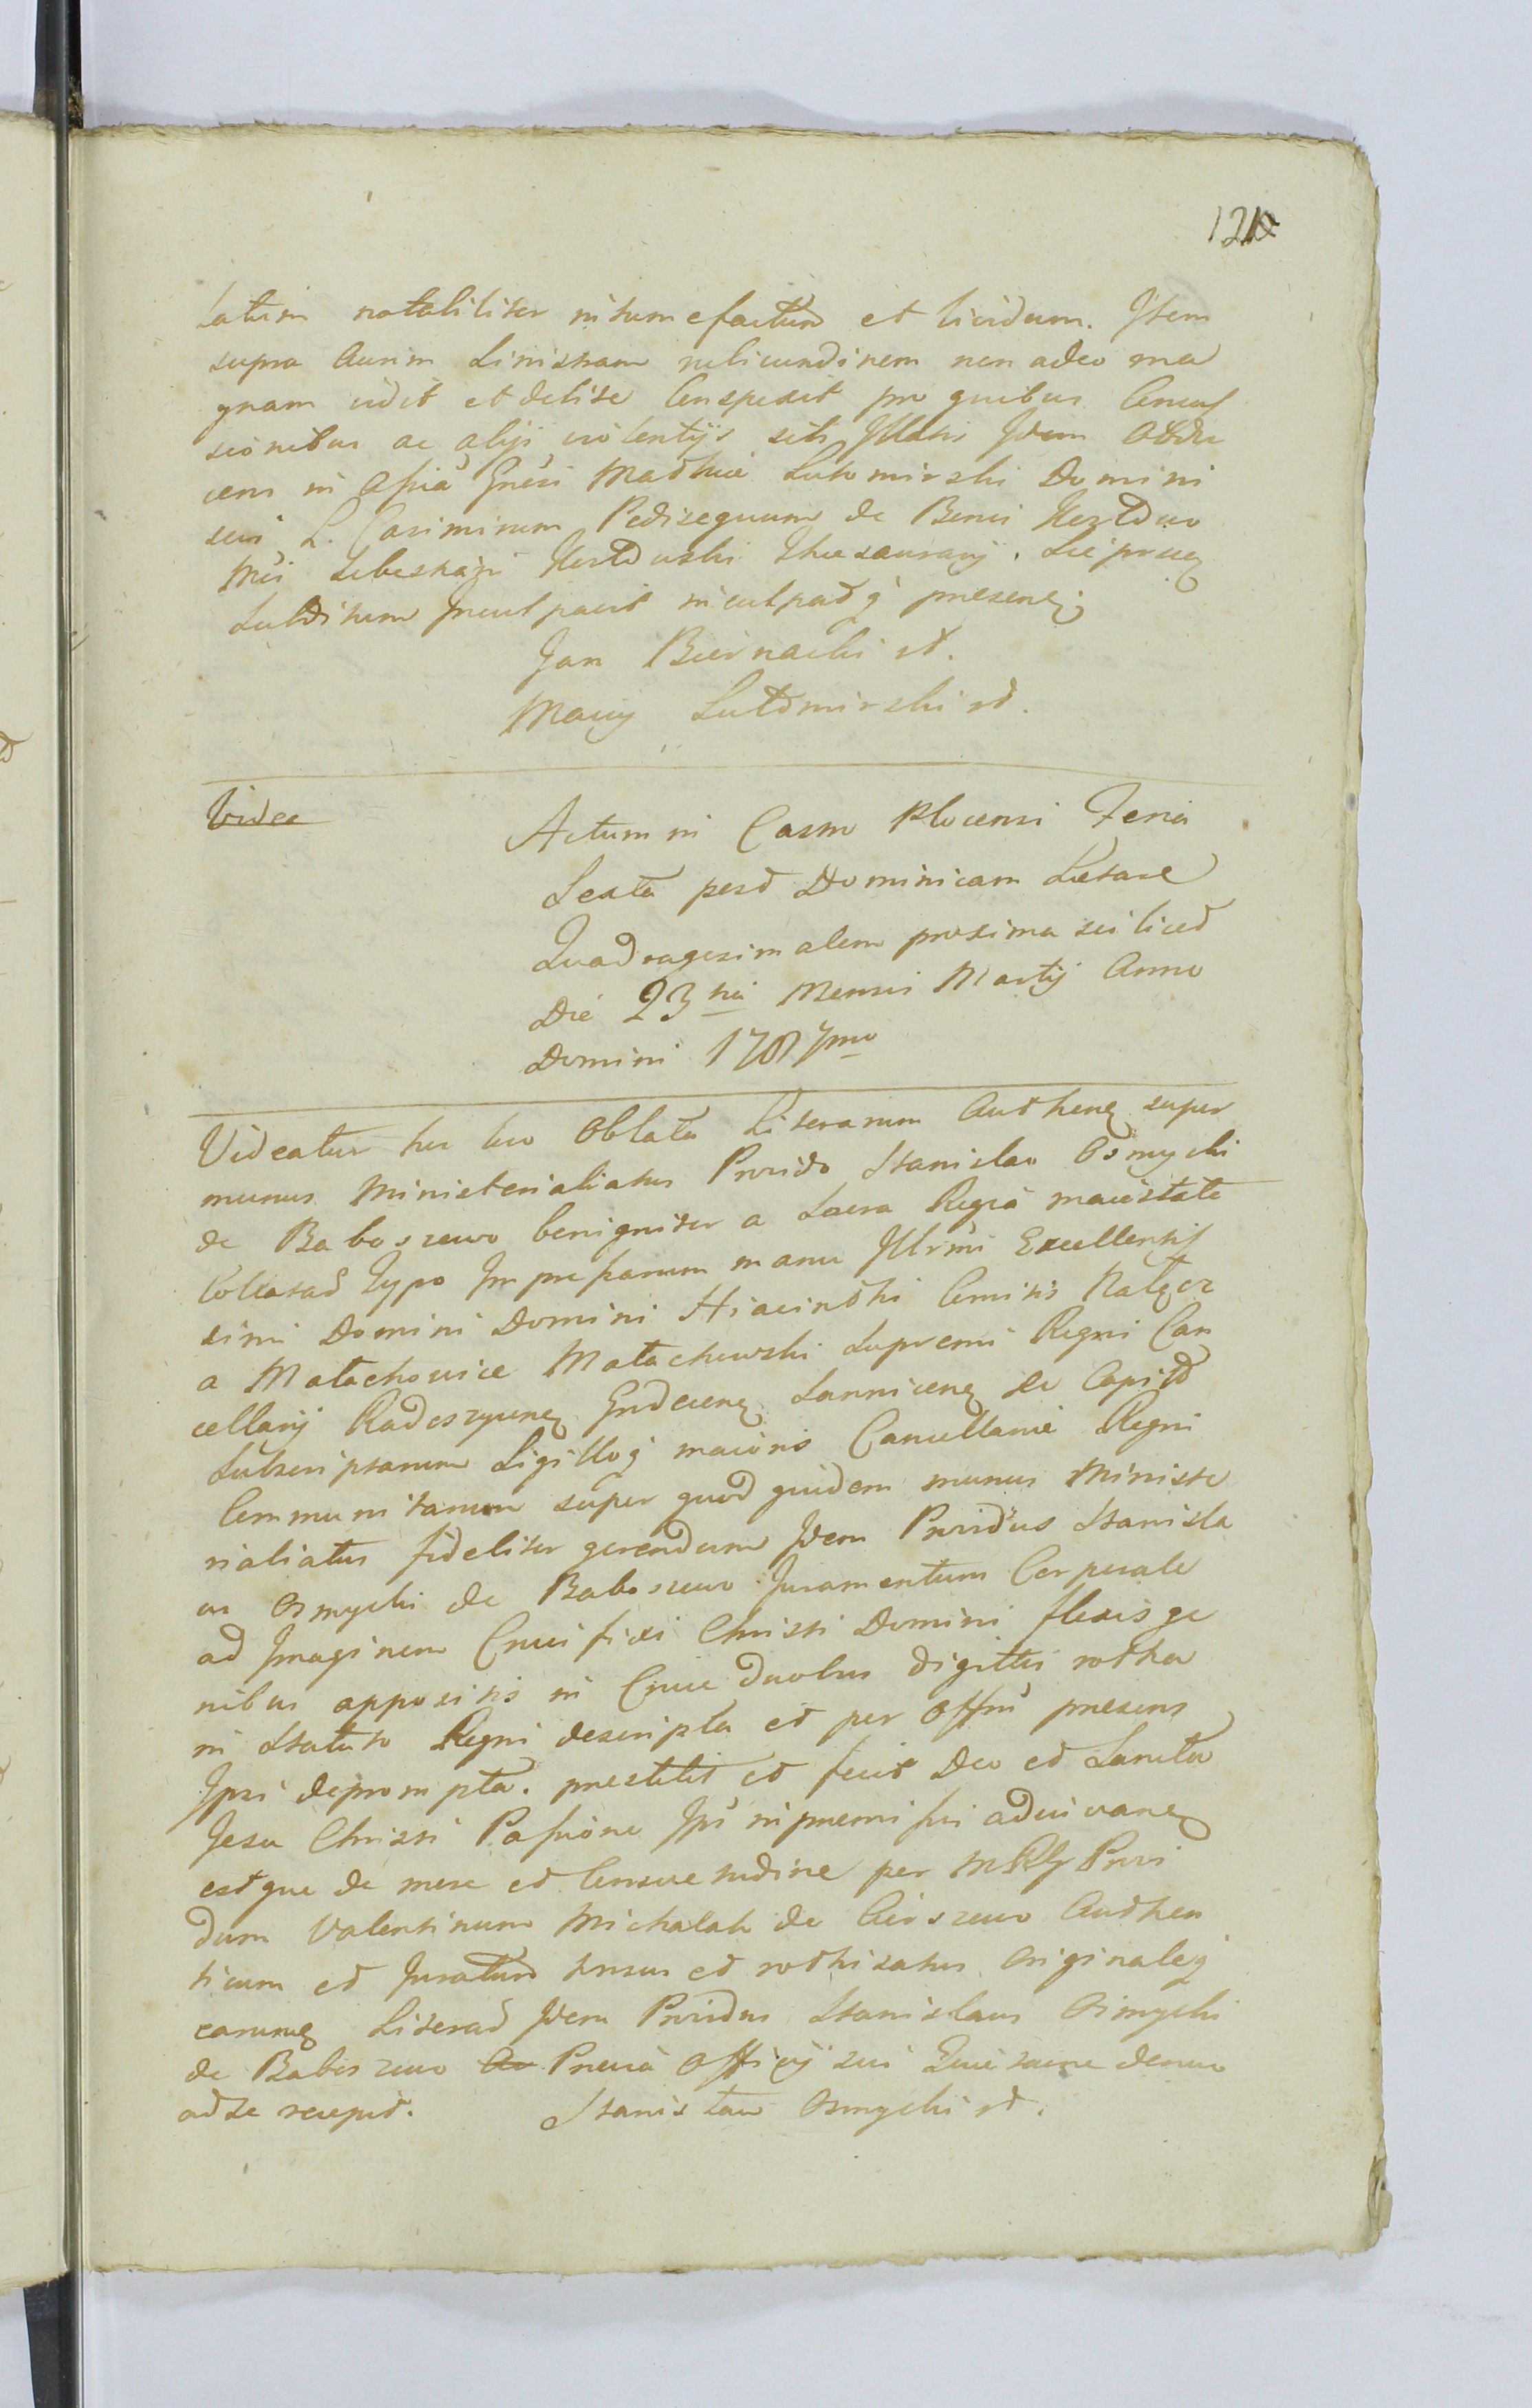 121
latum notabiliter intumefactum et lividum. Item
supra Aurim Sinistram rubicundinem non adeo ma
gnam vidit et debite Conspexit pro quibus Concus
sionibus ac alijs violentijs sibi Illatis Idem Obdu
cens in Assia Gnesi Mathie Lutomirski Domini
sui L. Casimirum Pedisequum de Bonis
Mci Sebestiani Thesaurarij. Sie prueq
Subditum Inculpavit inculpatq presenq
Jan Biernacki st.
Maciy Lutomirski st.
Videa
Actum in Casto Plocensi Feria
Sexta post Dominicam Lætare
Quadragesimalem proxima scilicet
Die 23tia Mensis Martij Anno
Domini 1787mo
Videatur hic loco Oblata Literarum Authenq super
munus Ministerialiatus Provido Stanislao Osmycki
de Baboszewo benigniter a Sacra Regia maiestate
Collatad Typo Impressarum manu Illrmi Excellentis
simi Domini Domini Hiacinthi Comitis Natęcz
a Matachowice Matachowski Supremi Regni Can
cellarij Radoszycenq Grodecenq Sanniceng &c Capitd
Subscriptarum Sigilloq maioris Cancellarie Regni
Communitarum super quod quidem munus Ministe
rialiatus fideliter gerendum Idem Providus Stanisla
us Osmycki de Baboszewo Juramentum Corporale
ad Imaginem Crucifixi Christi Domini flexis ge
nibus appositis in Cruce duobus digittis rotha
in Statuto Regni descripta et per Offm presens
Ipsi deprompta. prestitit et fecit Deo et Sancta
Jesu Christi Passione Ipsi in premissis adiuvanq
estque de more et Consuetudine per MRG Provi
dum Valentinum Michalak de Cieszewo Authen
ticum et Juratum tonsus et rothisatus Originaleq
earumq Literad Idem Providus Stanislaus Osmycki
de Baboszewo Ao Previa Officij sui Quietacione denuo
ad se recepit. Stanisław Osmycki st.